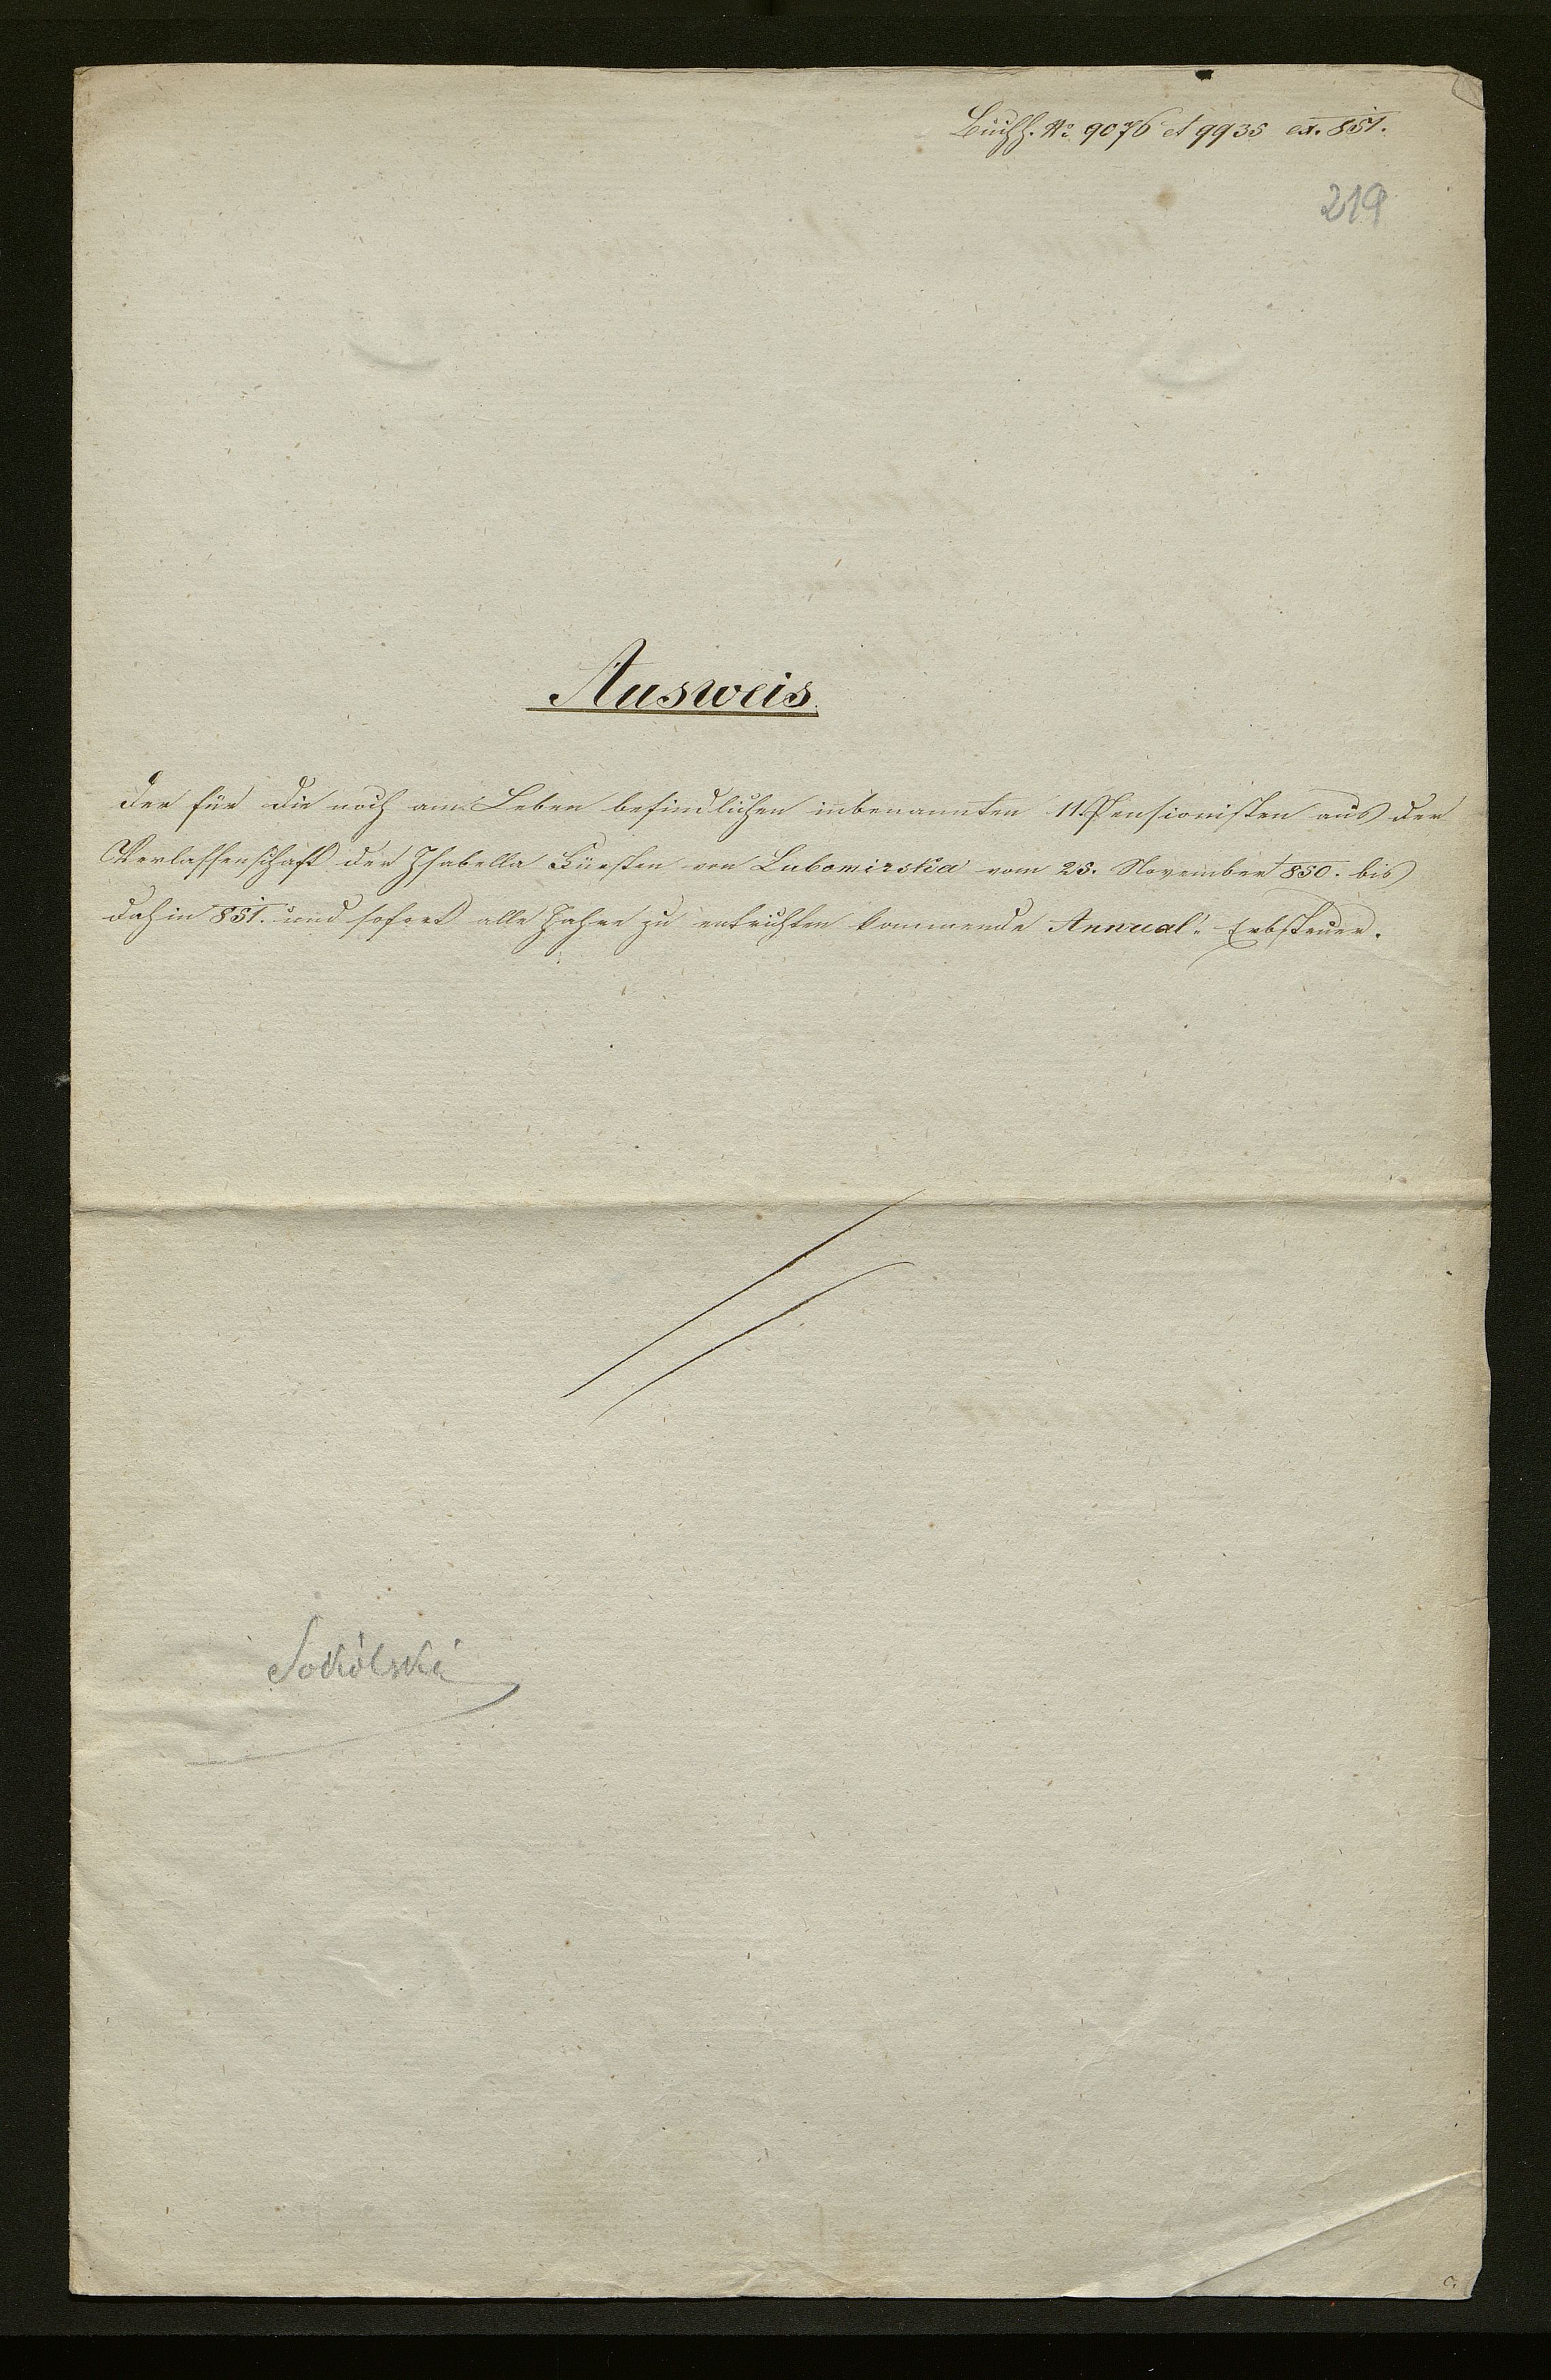 Buchh. No. 9076 et 9935 ex. 851.
219
Ausweis.
der für die noch am Leben befindlichen inbenannten 11 Pensionisten aus der
Verlassenschaft der Isabella Fürsten von Lubomirska vom 25. November 850. bis
dahin 851. und sofort alle Jahre zu entrichten kommende Annual-Erbsteuer.
Sokólski